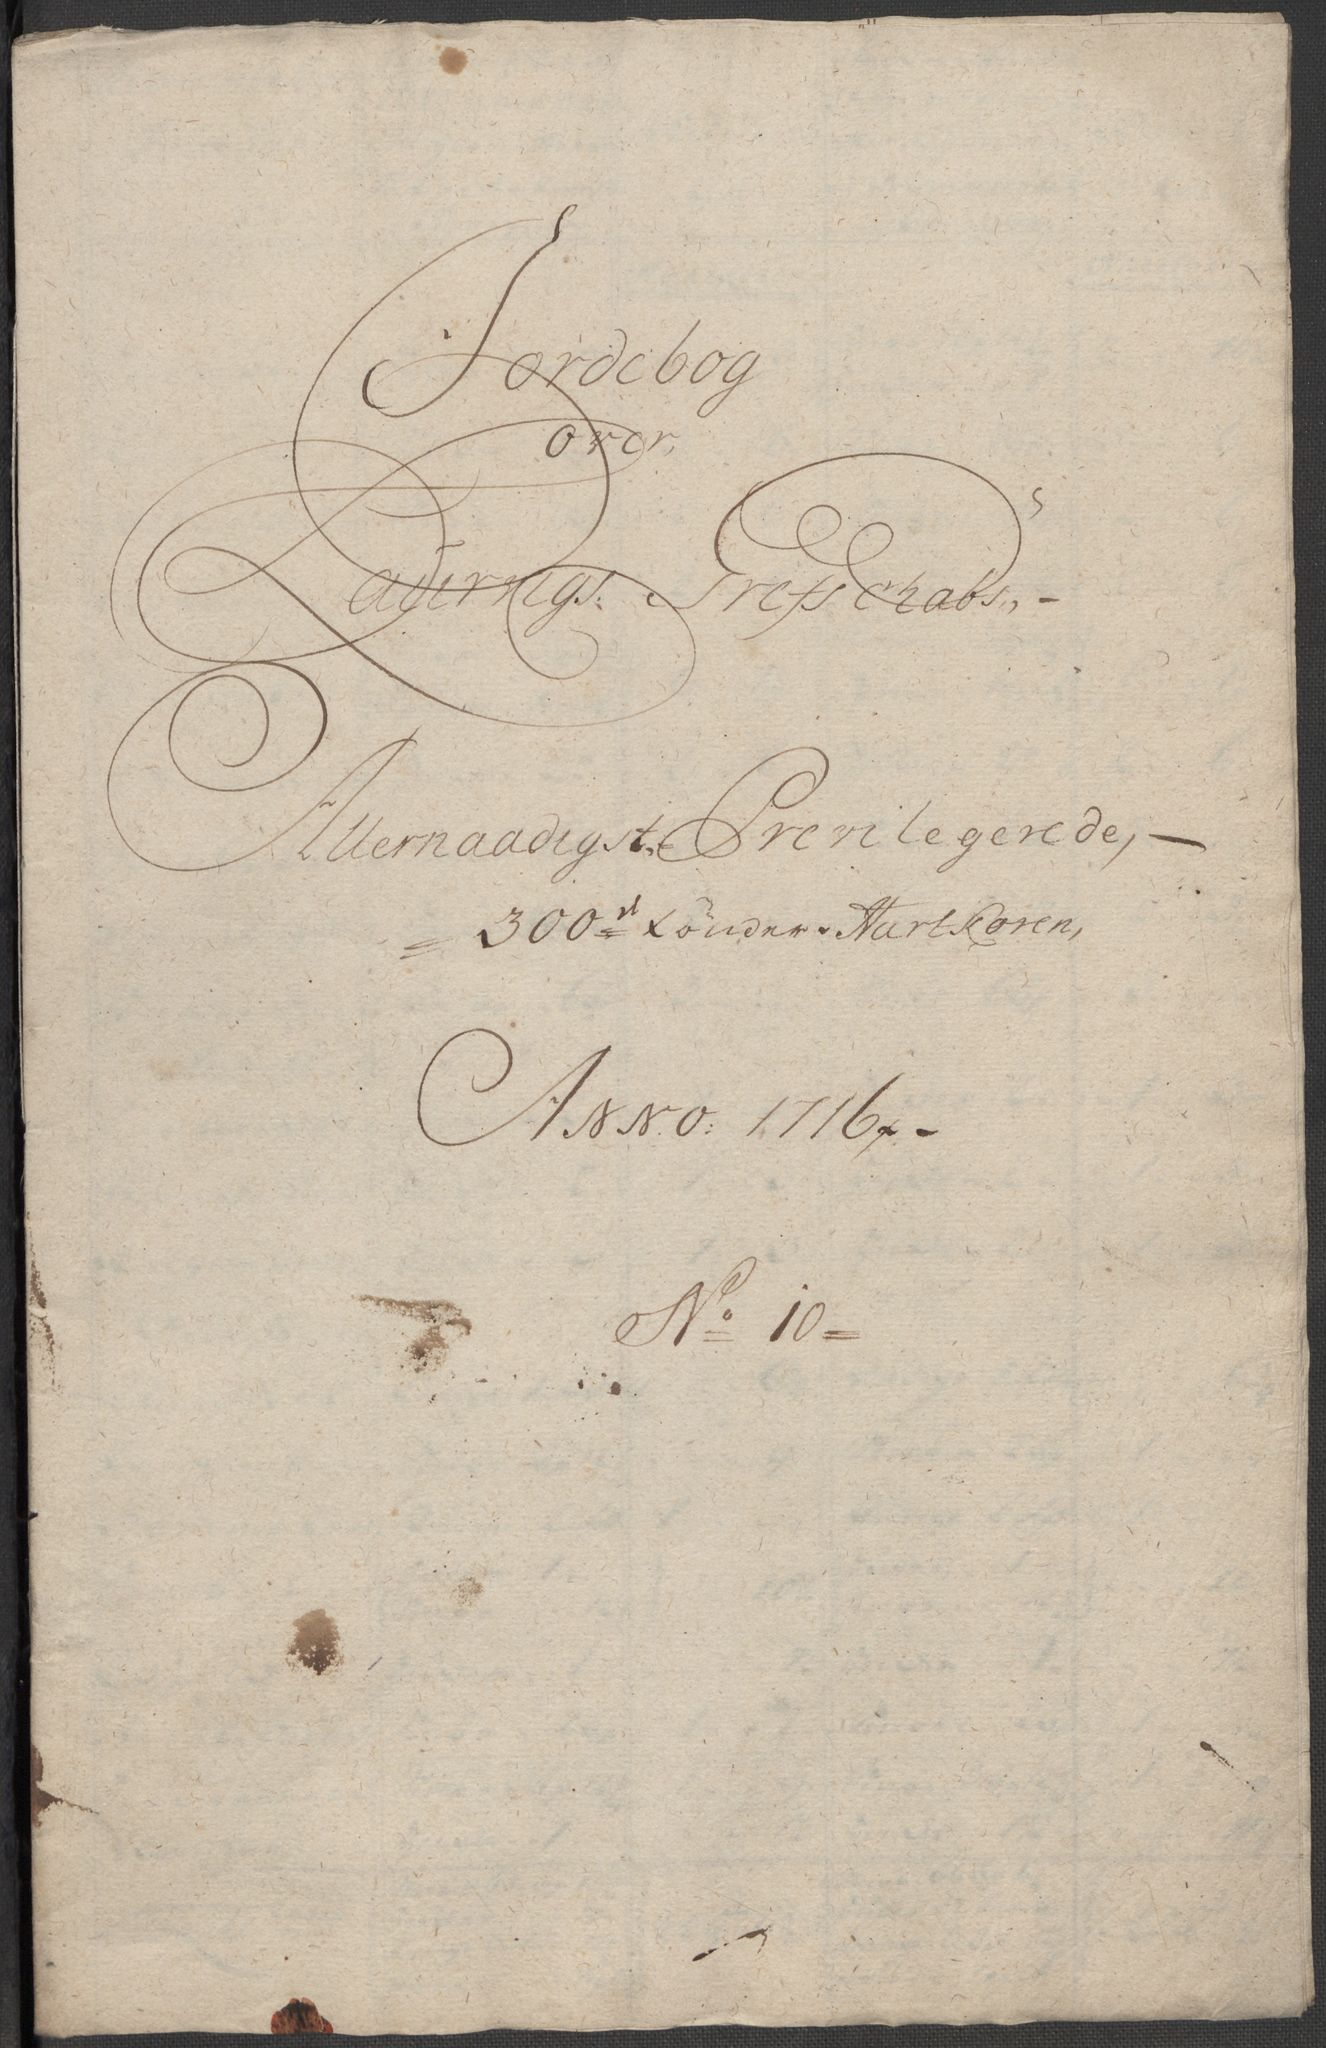 Jordebog
over
Laurvigs Grefschabs, -
Allernaadigst Previlegerede, -
= 300de tönder Hartkoren,
ANNO: 1716 -
No 10 =